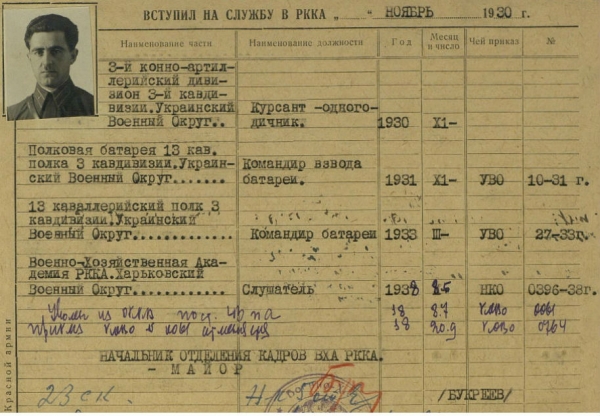 ВСТУПИЛ НА СЛУЖБУ В РККА „ " НОЯБРЬ 1930 г.
Наименование части Наименование должности Год Месяц и число Чей приказ №
3-й конно-артил-
лерийский диви-
зион 3-й кавди-
визии.Украинский Курсант -одного-
Военный Округ.. дичник. 1930 X1-
Полковая батарея 13 кав.
полка 3 кавдивизии.Украин- Командир взвода
ский Военный Округ....... батареи. 1931 X1- УВО 10-31 г.
13 каваллерийский полк 3
кавдивизии.Украинский
Военный Округ........... Командир батареи 1933 Ш- УВО 27-33г.
Военно-Хозяйственная Ака-
демия РККА.Харьковский
Военный Округ........... Слушатель 1938 НКО 0396-38г.
из РККА 38 8.7 ХВО
приказ ХВО 38 20.9 ХВО
НАЧАЛЬНИК ОТДЕЛЕНИЯ КАДРОВ ВХА РККА.
- МАЙОР
/БУКРЕЕВ/
23
Красной армии